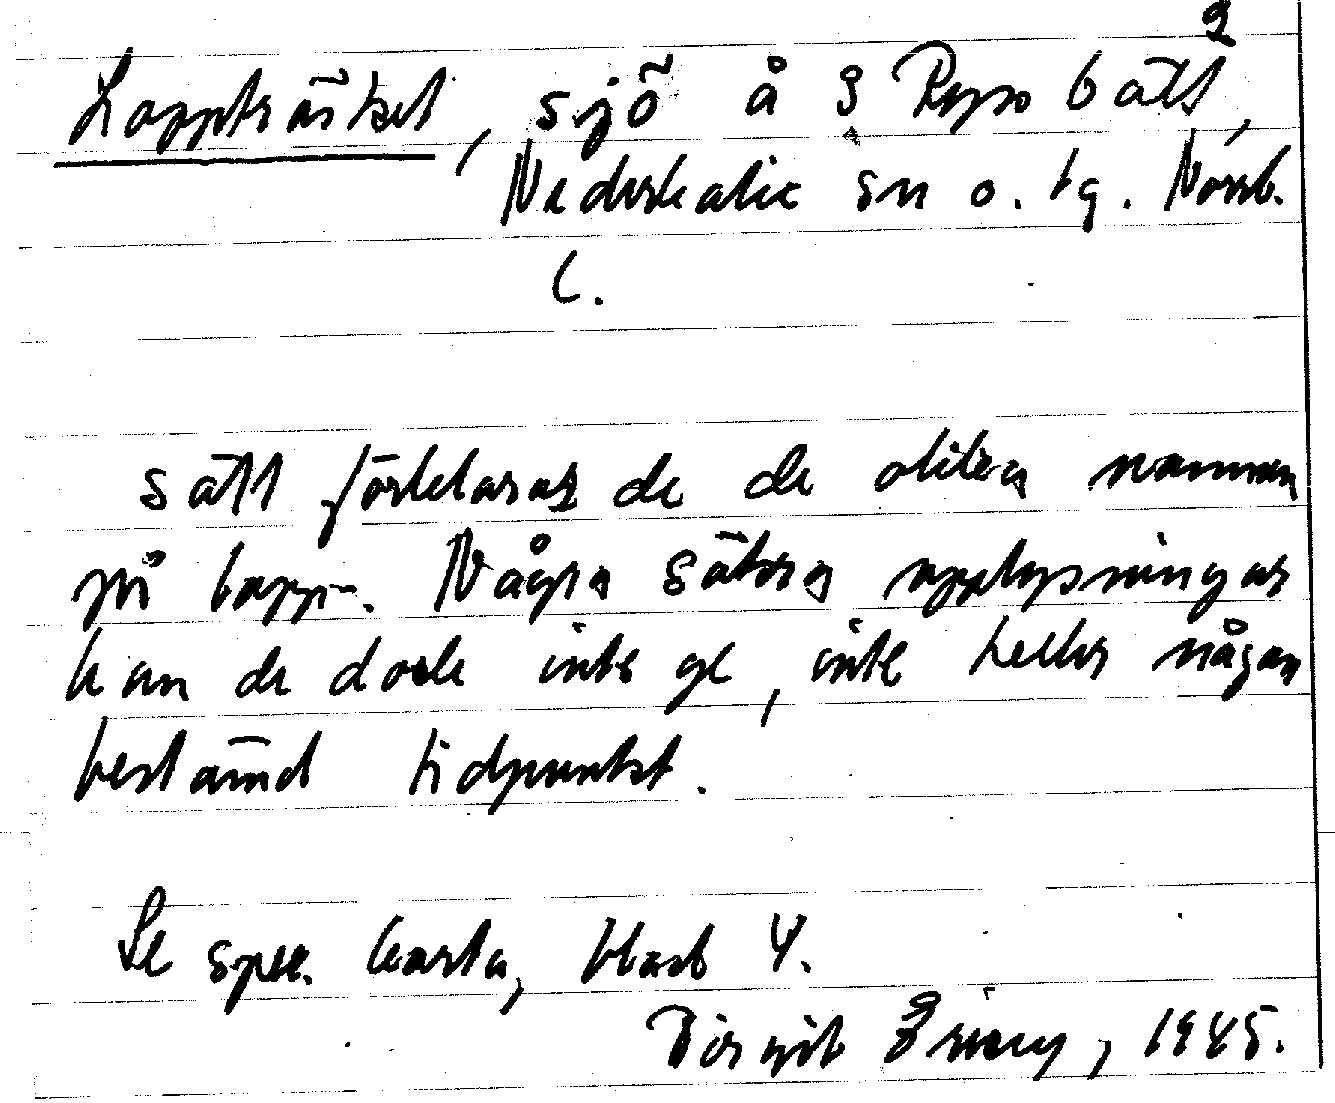 2
Lappträsket, sjö å S Repsobält,
Nederkalix sn o. tg. Norrb.
l.
sätt förklarar de de olika namnen
på lapp-. Några säkra upplysningar
kan de dock inte ge, inte heller någon
bestämd tidpunkt.
Se spec. karta, blad 4.
Birgit 1945.